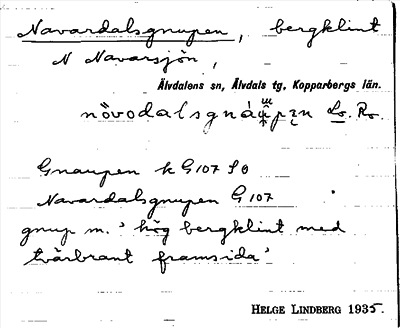 Navardalsgnupen, bergklint
N Navarsjön,
Älvdalens sn, Älvdals tg, Kopparbergs län.
Gnaupen k G107 SO
Navardalsgnupen G107
gnup m. ' hög bergklint med
tvärbrant framsida'
HELGE LINDBERG 1935.